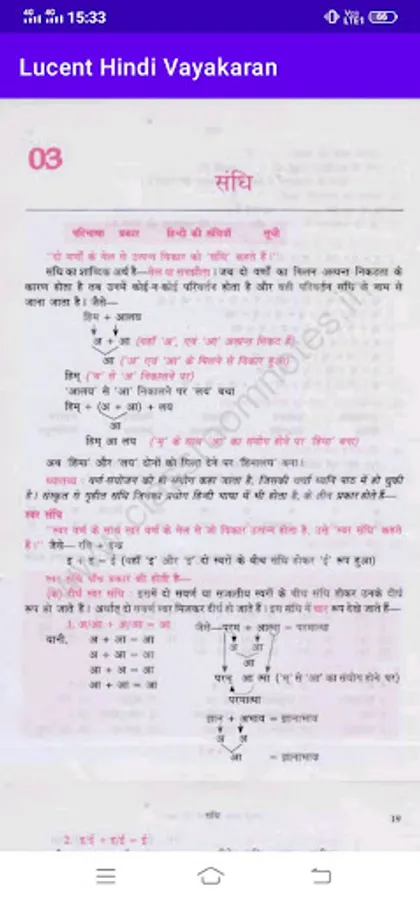 15:33
Lucent Hindi Vayakaran
03
संधि
परिभाषा प्रकार हिन्दी की संधियाँ सूची
"दो वर्णों के मेल से उत्पन्न विकार को 'संधि' कहते हैं।"
संधि का शाब्दिक अर्थ है—मेल या समझौता। जब दो वर्णों का मिलन अत्यन्त निकटता के
कारण होता है तब उनमें कोई-न-कोई परिवर्तन होता है और वही परिवर्तन संधि के नाम से
जाना जाता है। जैसे—
हिम + आलय
अ + आ (यहाँ 'अ', एवं 'आ' अत्यन्त निकट हैं)
आ ('अ' एवं 'आ' के मिलने से विकार हुआ)
हिम् ('म' से 'अ' निकालने पर)
'आलय' से 'आ' निकालने पर 'लय' बचा
हिम् + (अ + आ) + लय
आ
हिम् आ लय ('म्' के साथ 'आ' का संयोग होने पर 'हिमा' बना)
अब 'हिमा' और 'लय' दोनों को मिला देने पर 'हिमालय' बना।
ध्यातव्य : वर्ण-संयोजन को ही संयोग कहा जाता है, जिसकी चर्चा ध्वनि पाठ में हो चुकी
है। संस्कृत से गृहीत संधि जिनका प्रयोग हिन्दी भाषा में भी होता है, के तीन प्रकार होते हैं—
स्वर संधि
"स्वर वर्ण के साथ स्वर वर्ण के मेल से जो विकार उत्पन्न होता है, उसे 'स्वर संधि' कहते
हैं।" जैसे— रवि + इन्द्र
इ + इ = ई (यहाँ 'इ' और 'इ' दो स्वरों के बीच संधि होकर 'ई' रूप हुआ)
स्वर संधि पाँच प्रकार की होती है—
(क) दीर्घ स्वर संधि : इसमें दो सवर्ण या सजातीय स्वरों के बीच संधि होकर उनके दीर्घ
रूप हो जाते हैं। अर्थात् दो सवर्ण स्वर मिलकर दीर्घ हो जाते हैं। इस संधि में चार रूप देखे जाते हैं—
1. अ/आ + अ/आ = आ जैसे—परम + आत्मा = परमात्मा
यानी, अ + अ = आ
अ आ
अ + आ = आ
आ
आ + अ = आ
परम् आ त्मा ('म्' से 'आ' का संयोग होने पर)
आ + आ = आ
परमात्मा
ज्ञान + अभाव = ज्ञानाभाव
अ अ
आ = ज्ञानाभाव
संधि 19
2. इ/ई + इ/ई = ई
www.classroomnotes.in